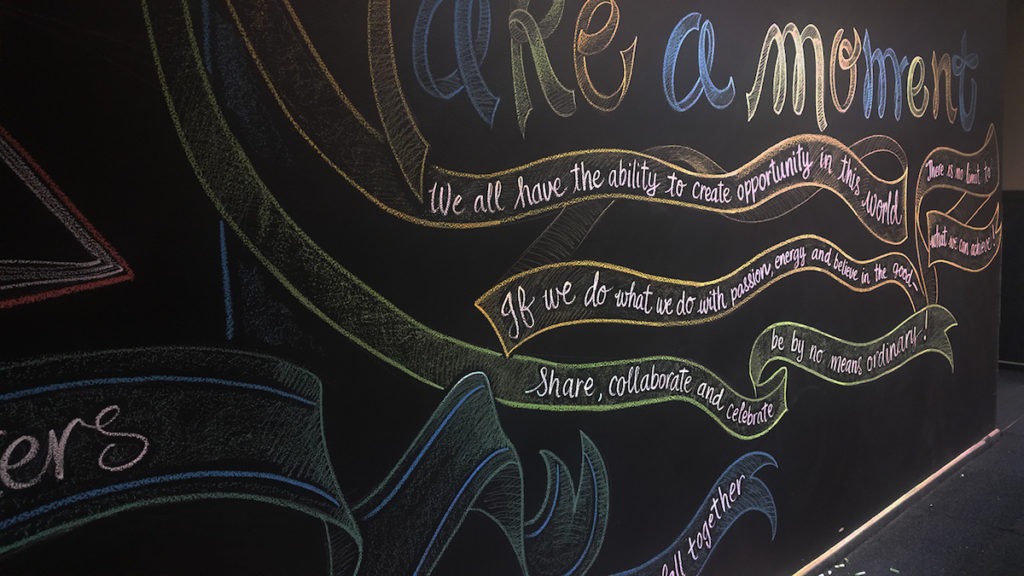 are a moment
We all have the ability to create opportunity in this world
There is no limit to
what we can achieve!
If we do what we do with passion, energy and believe in the good–
Share, collaborate and celebrate
be by no means ordinary!
ers
fall together